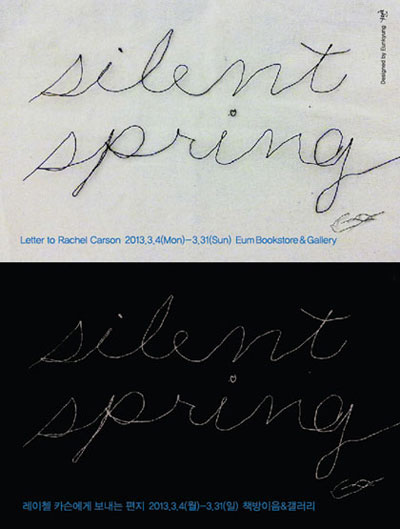 Designed by Eunkyung
silent
spring
Letter to Rachel Carson 2013.3.4(Mon)-3.31(Sun) Eum Bookstore&Gallery
silent
spring
레이첼 카슨에게 보내는 편지 2013.3.4(월)-3.31(일) 책방이음&갤러리